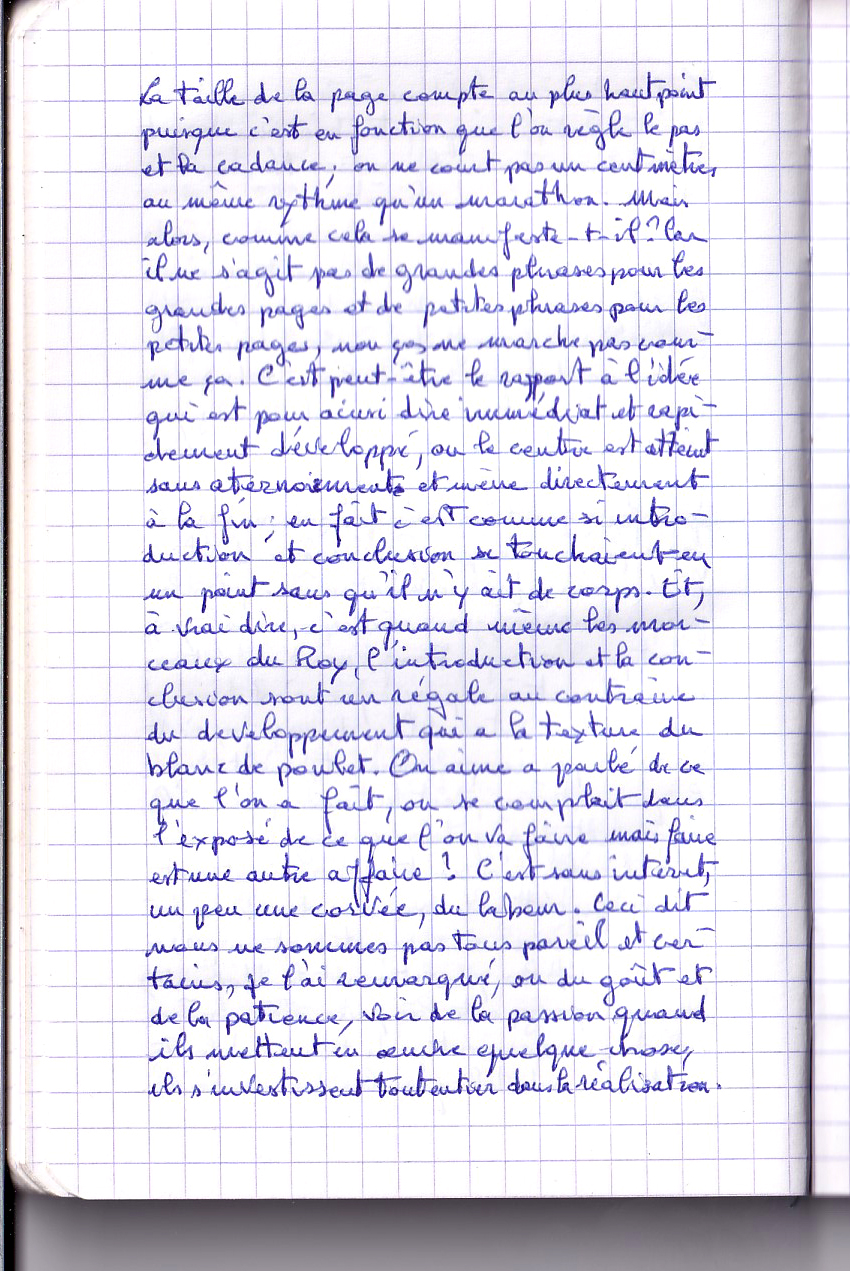 La taille de la page compte au plus haut point
puisque c'est en fonction que l'on règle le pas
et la cadance, on ne court pas un cent mètres
au même rythme qu'un marathon. Mais
alors, comme cela se manifeste-t-il ? Car
il ne s'agit pas de grandes phrases pour les
grandes pages et de petites phrases pour les
petites pages, non ças ne marche pas com-
me ça. C'est peut-être le rapport à l'idée
qui est pour ainsi dire immédiat et rapi-
dement développé, ou le centre est atteint
sans atermoiements et mène directement
à la fin ; en fait c'est comme si intro-
duction et conclusion se touchaient en
un point sans qu'il n'y ait de corps. Et,
à vrai dire, c'est quand même les mor-
ceaux du Roy, l'introduction et la con-
clusion sont un régale au contraire
du developpement qui a la texture du
blanc de poulet. On aime a parlé de ce
que l'on a fait, on se complait dans
l'exposé de ce que l'on va faire mais faire
est une autre affaire ! C'est sans intérêt,
un peu une corvée, du labeur. Ceci dit
nous ne sommes pas tous pareil et cer-
tains, je l'ai remarqué, on du goût et
de la patience, voir de la passion quand
ils mettent en œuvre quelque chose,
ils s'investissent tout entier dans la réalisation.